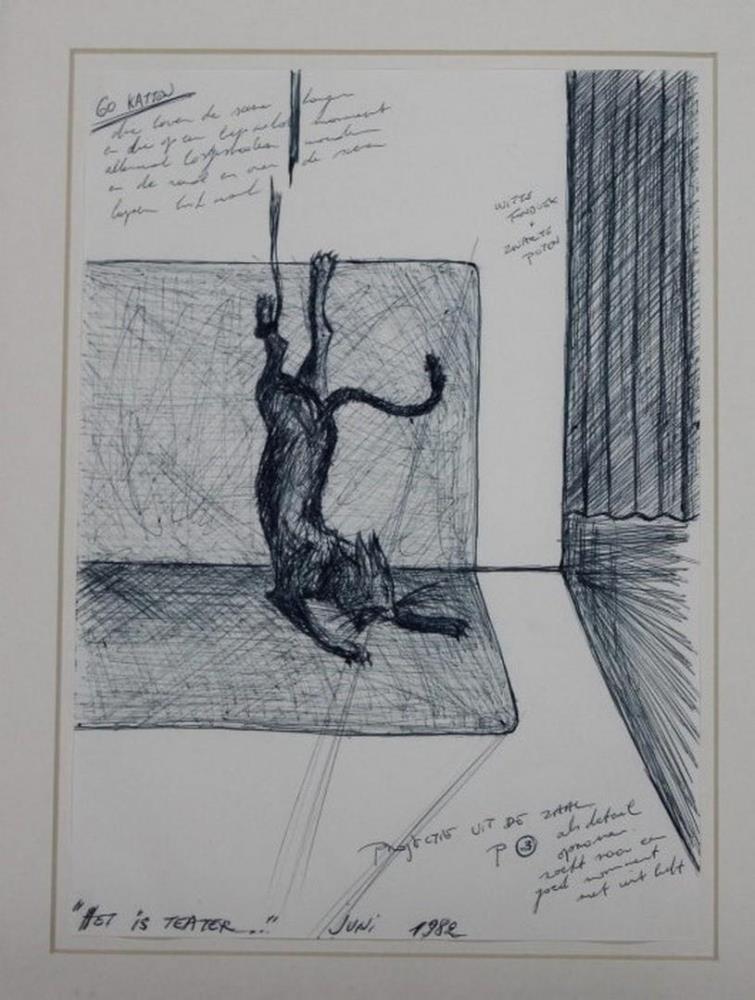 60 KATTEN
die boven de scene hangen
en die op een bepaald moment
allemaal losgelaten worden
en de rand en over de scene
lopen
WITTE
FONDOEK
+
ZWARTE
POTEN
PROJECTIE UIT DE ZAAL
P 3 als detail
opnemen.
zoekt naar een
goed moment
met uit
"HET IS TEATER..." JUNI 1982